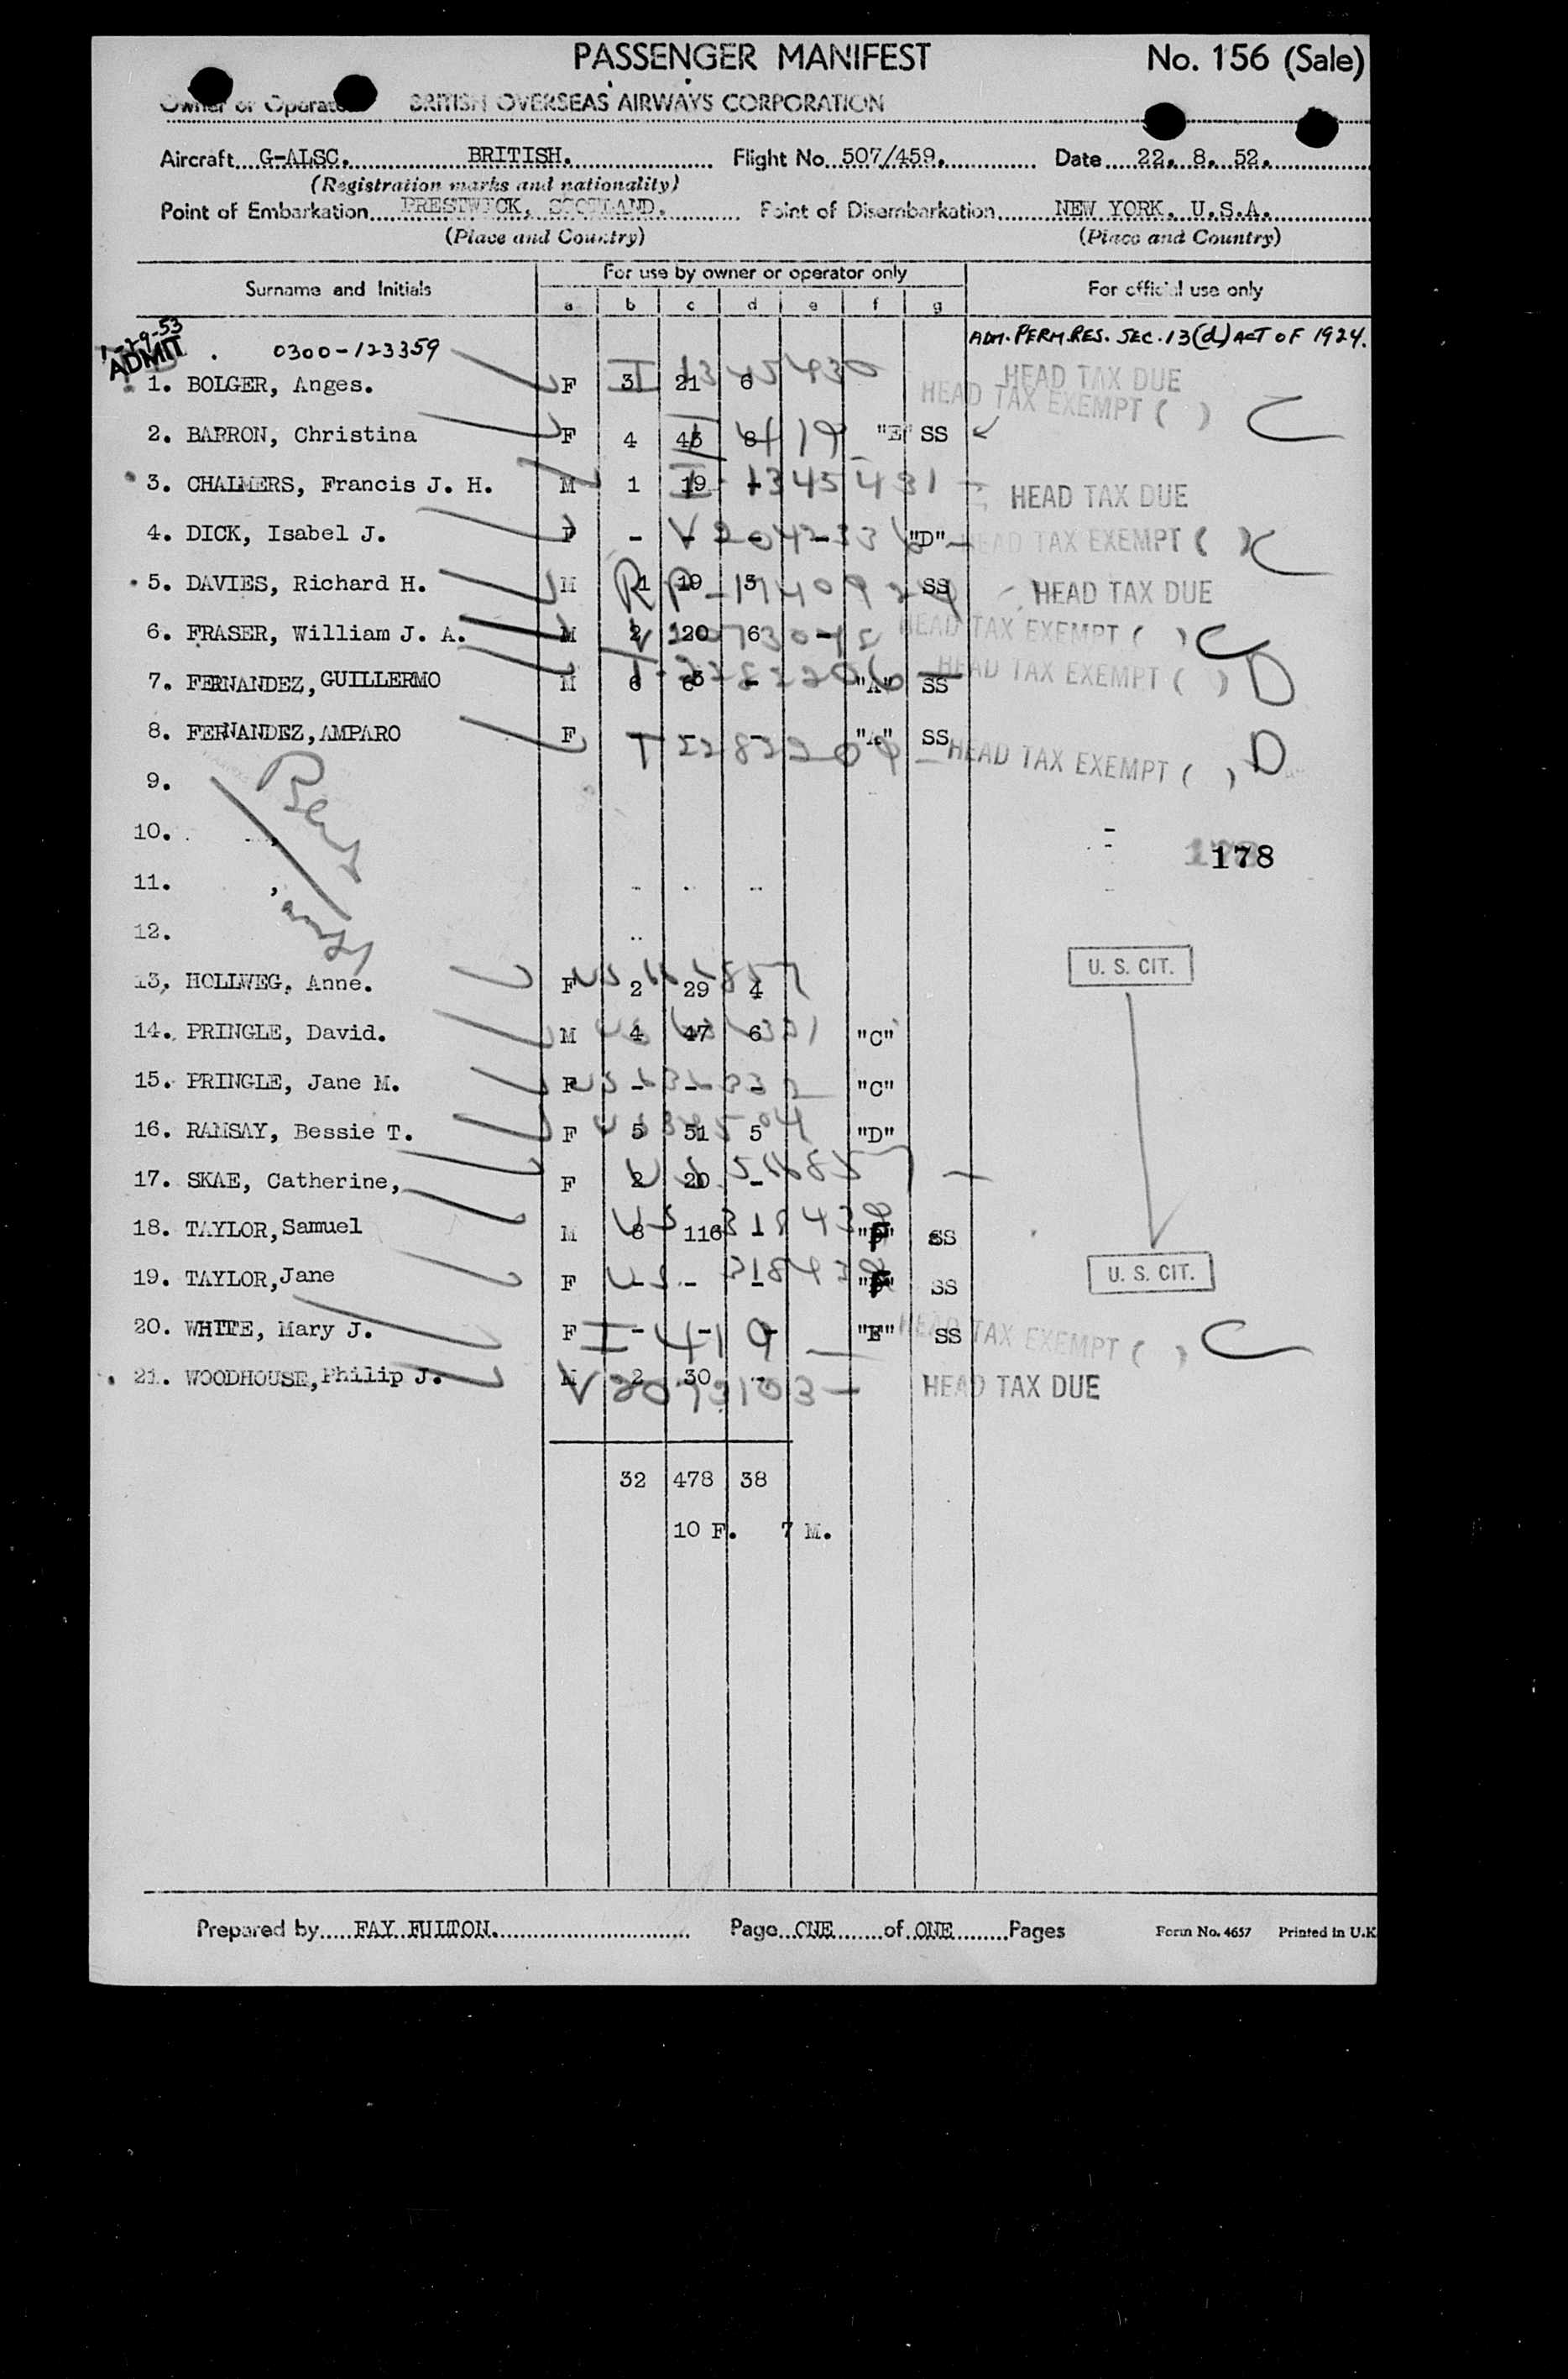 PASSENGER MANIFEST No. 156 (Sale)
Owner or Operator BRITISH OVERSEAS AIRWAYS CORPORATION
Aircraft G-ALSC. BRITISH. Flight No. 507/459. Date 22. 8. 52.
(Registration marks and nationality)
Point of Embarkation PRESTWICK, SCOTLAND. Point of Disembarkation NEW YORK. U.S.A.
(Place and Country) (Place and Country)
Surname and Initials For use by owner or operator only For official use only
a b c d e f g
1-29-53
ADMIT 0300-123359 ADM. PERM. RES. SEC. 13(d) ACT OF 1924.
1. BOLGER, Anges. F 3 21 6 I 1345430 HEAD TAX DUE
HEAD TAX EXEMPT ( ) C
2. BARRON, Christina F 4 43 8 I 419 "E" SS
3. CHALMERS, Francis J. H. M 1 19 - I 1345431 HEAD TAX DUE
4. DICK, Isabel J. F - - - - "D" HEAD TAX EXEMPT ( ) C
5. DAVIES, Richard H. M 1 19 5 SS HEAD TAX DUE
6. FRASER, William J. A. M 2 120 6 - HEAD TAX EXEMPT ( ) C
7. FERNANDEZ, GUILLERMO M 6 - "A" SS HEAD TAX EXEMPT ( ) D
8. FERNANDEZ, AMPARO F - - - "A" SS HEAD TAX EXEMPT ( ) D
9.
10. 178
11.
12.
U. S. CIT.
13, HOLLWEG, Anne. F 2 29 4
14. PRINGLE, David. M 4 47 6 "C"
15. PRINGLE, Jane M. F - - - "C"
16. RAMSAY, Bessie T. F 5 51 5 "D"
17. SKAE, Catherine, F 2 20 -
18. TAYLOR, Samuel M 8 116 1 "F" SS
19. TAYLOR, Jane F - - - "F" SS U. S. CIT.
20. WHITE, Mary J. F - - - I 419 "E" SS HEAD TAX EXEMPT ( ) C
21. WOODHOUSE, Philip J. M 2 30 - HEAD TAX DUE
32 478 38
10 F. 7 M.
Prepared by FAY FULTON. Page ONE of ONE Pages Form No. 4657 Printed in U.K